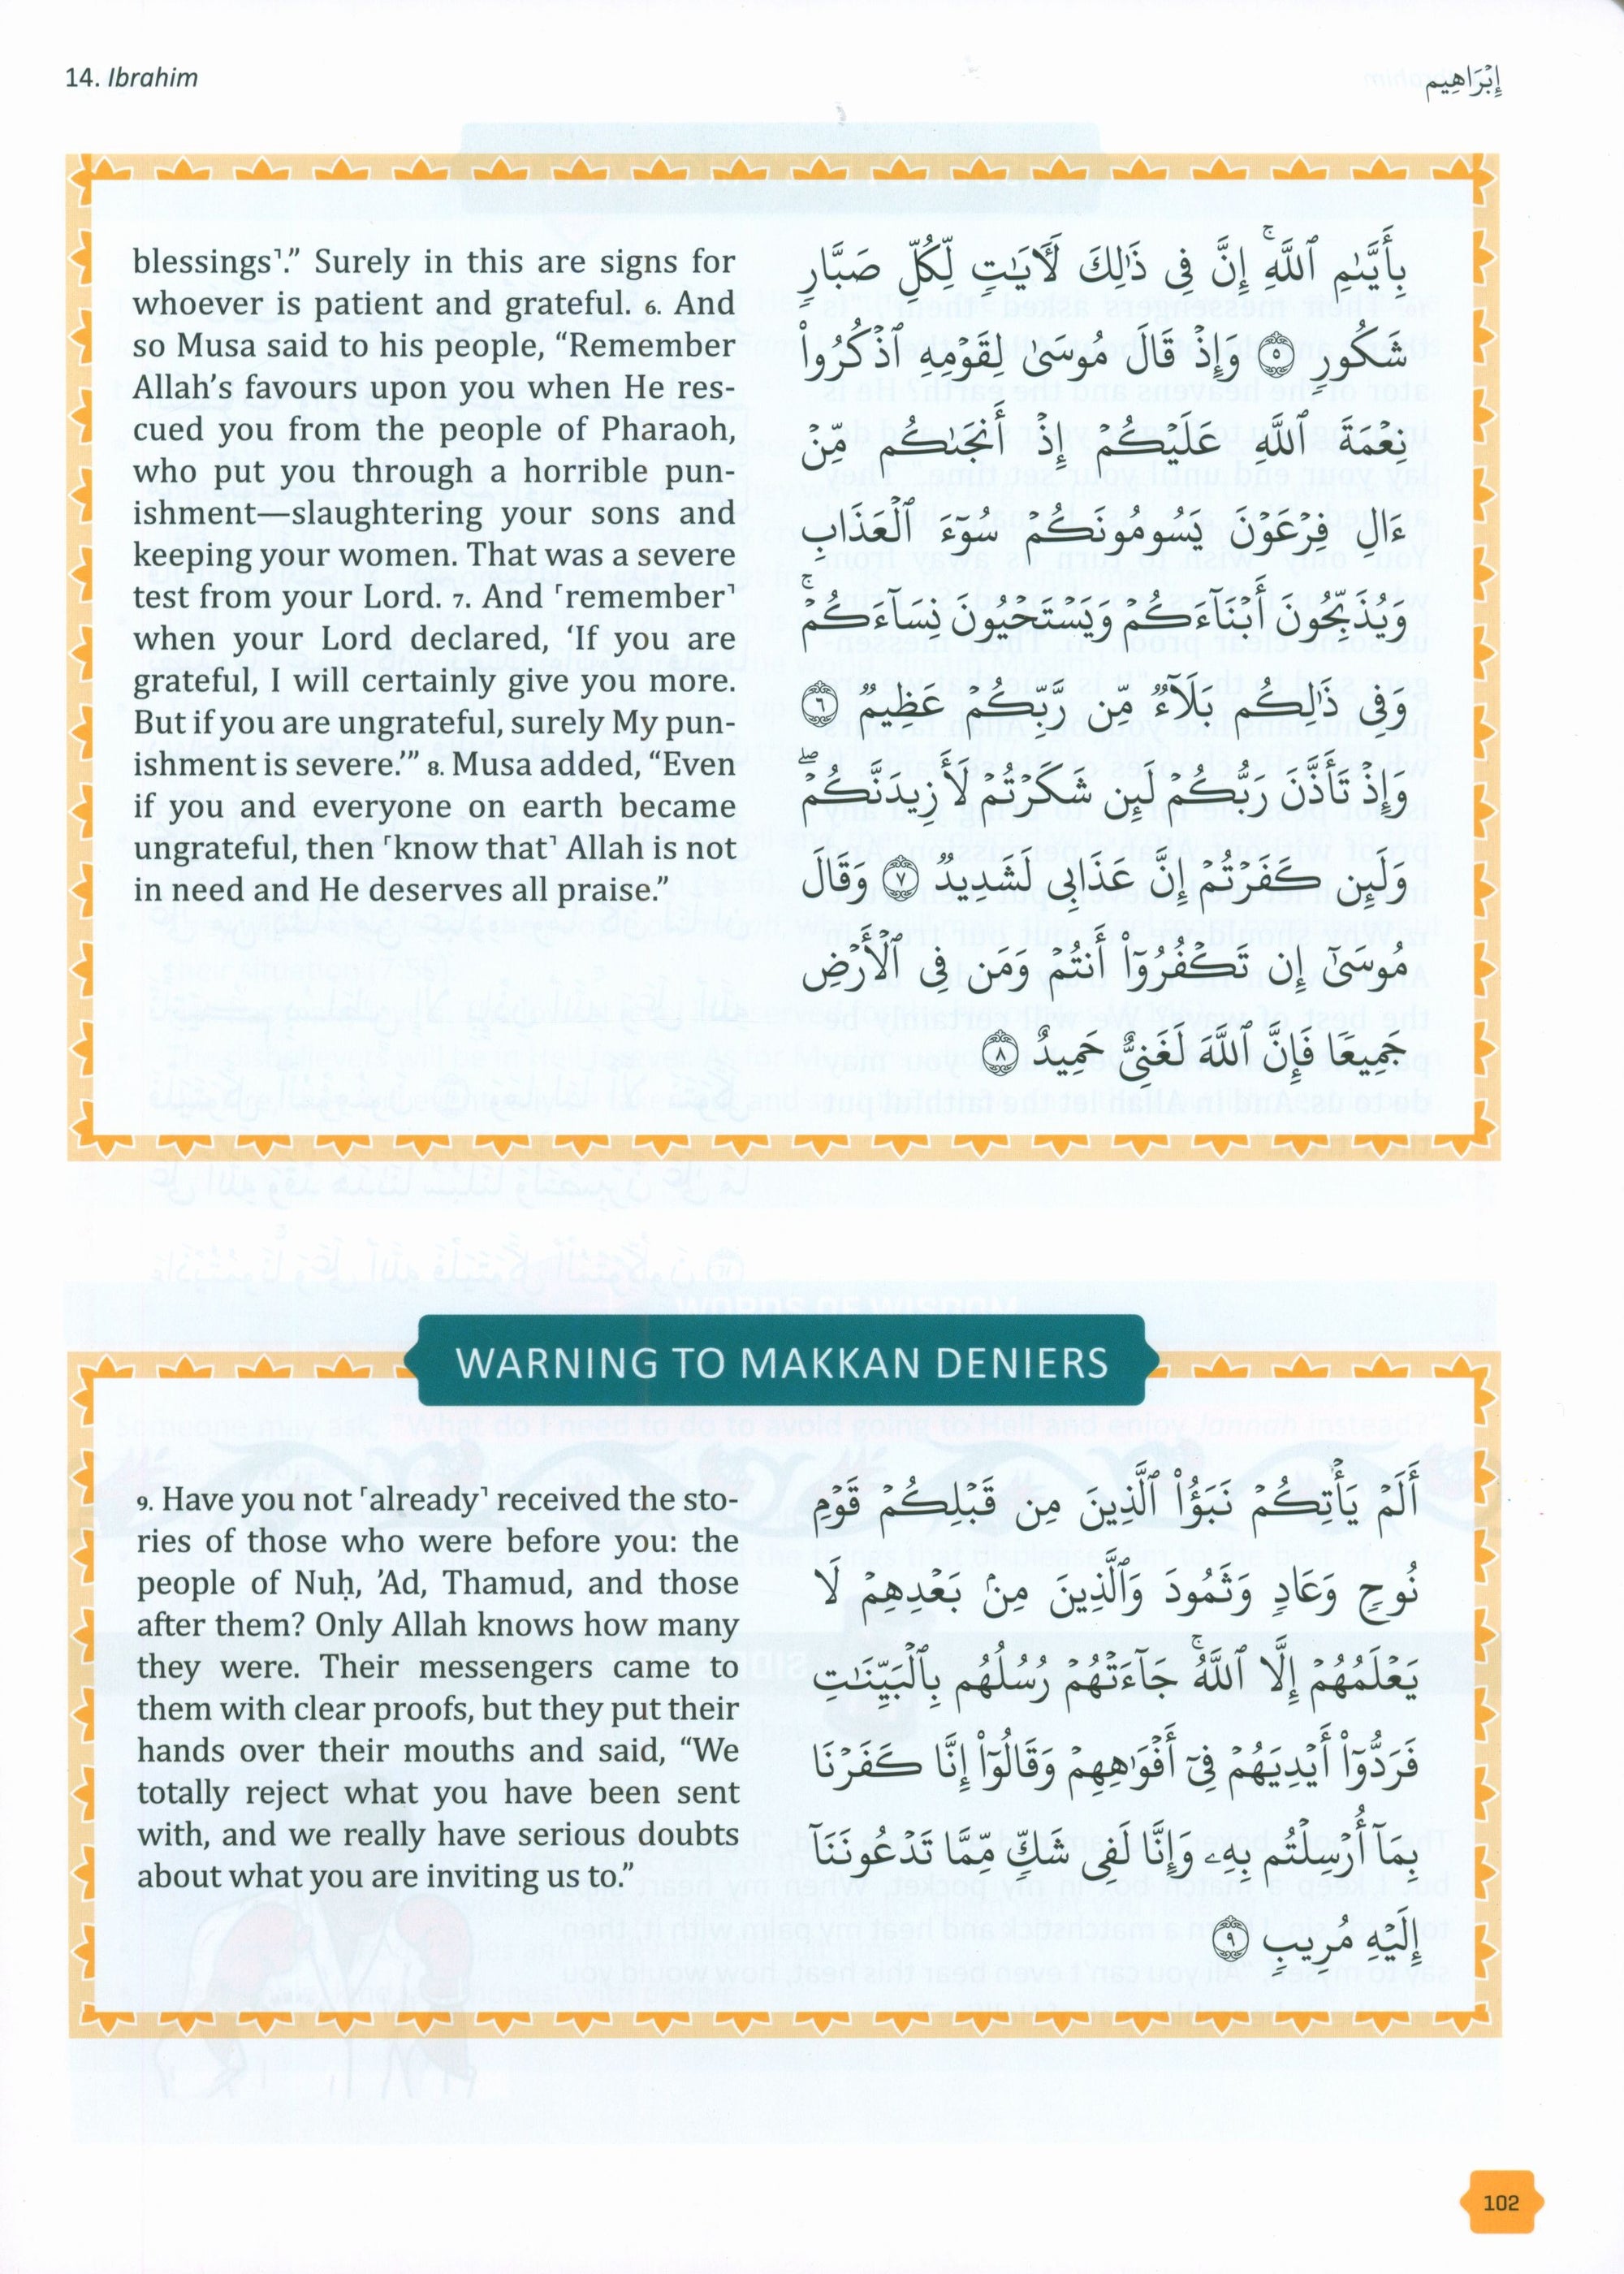 14. Ibrahim
إِبْرَاهِيم
blessings˺.” Surely in this are signs for
whoever is patient and grateful. 6. And
so Musa said to his people, “Remember
Allah’s favours upon you when He res-
cued you from the people of Pharaoh,
who put you through a horrible pun-
ishment—slaughtering your sons and
keeping your women. That was a severe
test from your Lord. 7. And ˹remember˺
when your Lord declared, ‘If you are
grateful, I will certainly give you more.
But if you are ungrateful, surely My pun-
ishment is severe.’” 8. Musa added, “Even
if you and everyone on earth became
ungrateful, then ˹know that˺ Allah is not
in need and He deserves all praise.”
بِأَيَّىٰمِ ٱللَّهِۚ إِنَّ فِى ذَٰلِكَ لَـَٔايَـٰتٍ لِّكُلِّ صَبَّارٍ
شَكُورٍ ۝٥ وَإِذْ قَالَ مُوسَىٰ لِقَوْمِهِ ٱذْكُرُوا۟
نِعْمَةَ ٱللَّهِ عَلَيْكُمْ إِذْ أَنجَىٰكُم مِّنْ
ءَالِ فِرْعَوْنَ يَسُومُونَكُمْ سُوٓءَ ٱلْعَذَابِ
وَيُذَبِّحُونَ أَبْنَآءَكُمْ وَيَسْتَحْيُونَ نِسَآءَكُمْۚ
وَفِى ذَٰلِكُم بَلَآءٌ مِّن رَّبِّكُمْ عَظِيمٌ ۝٦
وَإِذْ تَأَذَّنَ رَبُّكُمْ لَئِن شَكَرْتُمْ لَأَزِيدَنَّكُمْۖ
وَلَئِن كَفَرْتُمْ إِنَّ عَذَابِى لَشَدِيدٌ ۝٧ وَقَالَ
مُوسَىٰٓ إِن تَكْفُرُوٓا۟ أَنتُمْ وَمَن فِى ٱلْأَرْضِ
جَمِيعًا فَإِنَّ ٱللَّهَ لَغَنِىٌّ حَمِيدٌ ۝٨
WARNING TO MAKKAN DENIERS
9. Have you not ˹already˺ received the sto-
ries of those who were before you: the
people of Nuḥ, ’Ad, Thamud, and those
after them? Only Allah knows how many
they were. Their messengers came to
them with clear proofs, but they put their
hands over their mouths and said, “We
totally reject what you have been sent
with, and we really have serious doubts
about what you are inviting us to.”
أَلَمْ يَأْتِكُمْ نَبَؤُا۟ ٱلَّذِينَ مِن قَبْلِكُمْ قَوْمِ
نُوحٍ وَعَادٍ وَثَمُودَ وَٱلَّذِينَ مِنۢ بَعْدِهِمْ لَا
يَعْلَمُهُمْ إِلَّا ٱللَّهُۚ جَآءَتْهُمْ رُسُلُهُم بِٱلْبَيِّنَـٰتِ
فَرَدُّوٓا۟ أَيْدِيَهُمْ فِىٓ أَفْوَٰهِهِمْ وَقَالُوٓا۟ إِنَّا كَفَرْنَا
بِمَآ أُرْسِلْتُم بِهِۦ وَإِنَّا لَفِى شَكٍّ مِّمَّا تَدْعُونَنَآ
إِلَيْهِ مُرِيبٍ ۝٩
102